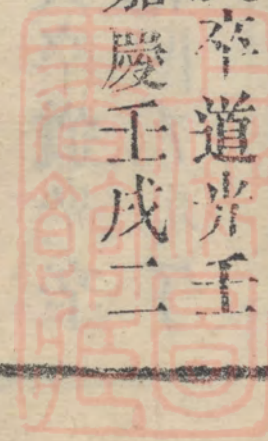 卒道光壬
嘉慶壬戌二